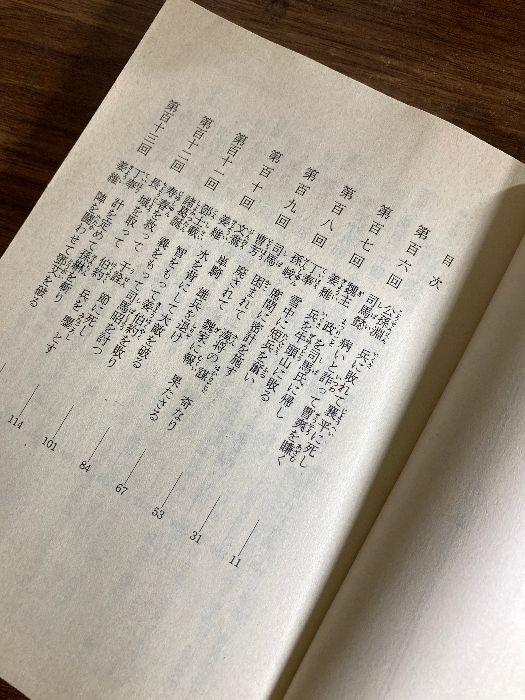 目次
第百六回
公孫淵 兵に敗れて襄平に死し
司馬懿 病いと詐って曹爽を賺く
11
第百七回
魏主 政を司馬氏に帰し
姜維 兵を牛頭山に敗る
31
第百八回
丁奉 雪中に短兵を奮い
孫峻 席間に密計を施す
53
第百九回
司馬 困まれて 漢将の謀 奇なり
曹芳 廃されて 魏家の報 果たさる
67
第百十回
文鴦 単騎 雄兵を退け
姜維 水を背にして大敵を破る
84
第百十一回
鄧士載 智をもって姜伯約を敗り
諸葛誕 義をもって司馬昭を討つ
101
第百十二回
寿春を救って 于詮 節に死し
長城を取って 伯約 兵を とす
114
第百十三回
丁奉 計を定めて孫綝を斬り
姜維 陣を闘わせて鄧艾を破る